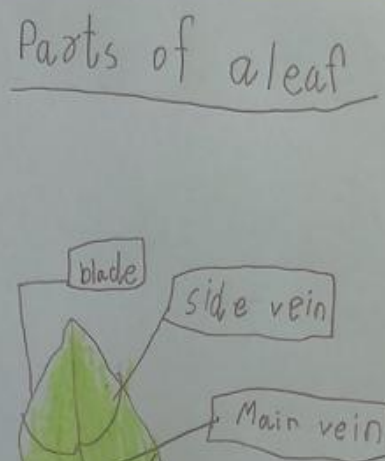 Parts of a leaf
blade
side vein
Main vein